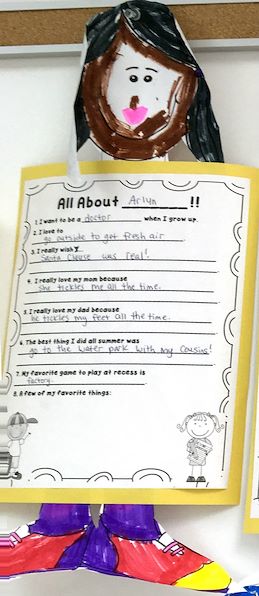 All About Arlyn !!
1. I want to be a doctor when I grow up.
2. I love to
go outside to get fresh air
3. I really wish
Santa Clause was real!
4. I really love my mom because
she tickles me all the time.
5. I really love my dad because
he tickles my feet all the time.
6. The best thing I did all summer was
go to the water park with my cousins!
7. My favorite game to play at recess is
factory.
8. A few of my favorite things: